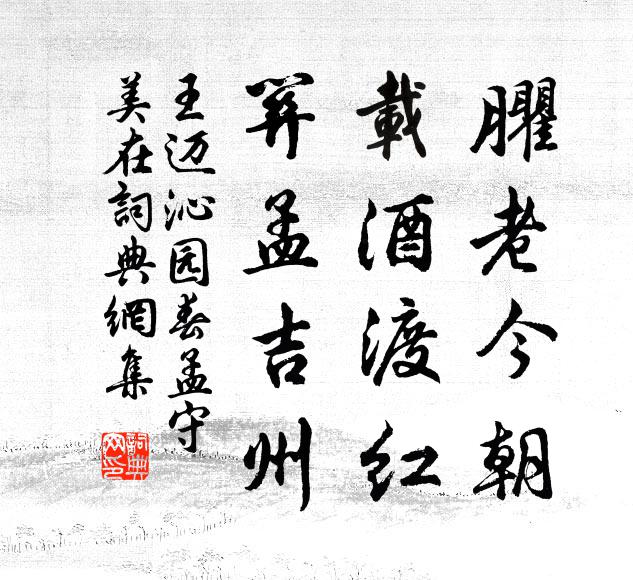 臞老今朝
載酒渡紅
羿孟吉州
王迈沁园春孟守
美在詞典網集
詞典网印